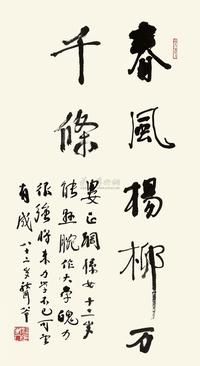 春風楊柳万
千條
晏正綱係女十三歲
能懸腕作大字魄力
很強將來力學不已可望
有成 八十二歲